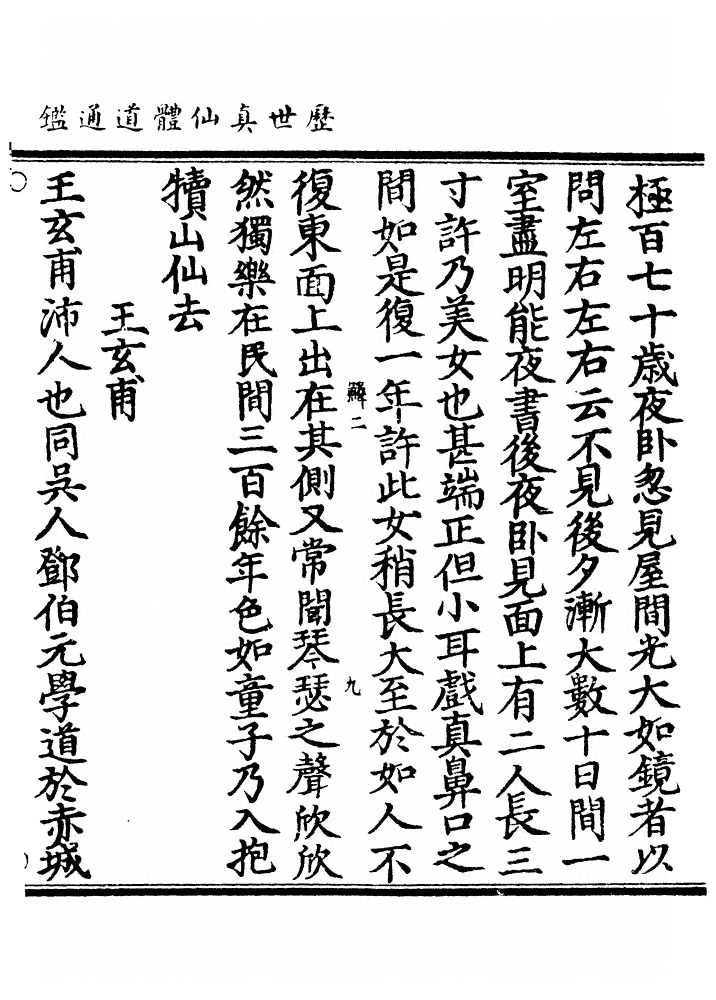 歷世真仙體道通鑑
極百七十歲夜卧忽見屋間光大如鏡者以
問左右左右云不見後夕漸大數十日間一
室盡明能夜書後夜卧見面上有二人長三
寸許乃美女也甚端正但小耳戲真鼻口之
間如是復一年許此女稍長大至於如人不
鱗二
九
復東面上出在其側又常聞琴瑟之聲欣欣
然獨樂在民間三百餘年色如童子乃入抱
犢山仙去
王玄甫
王玄甫沛人也同吳人鄧伯元學道於赤城